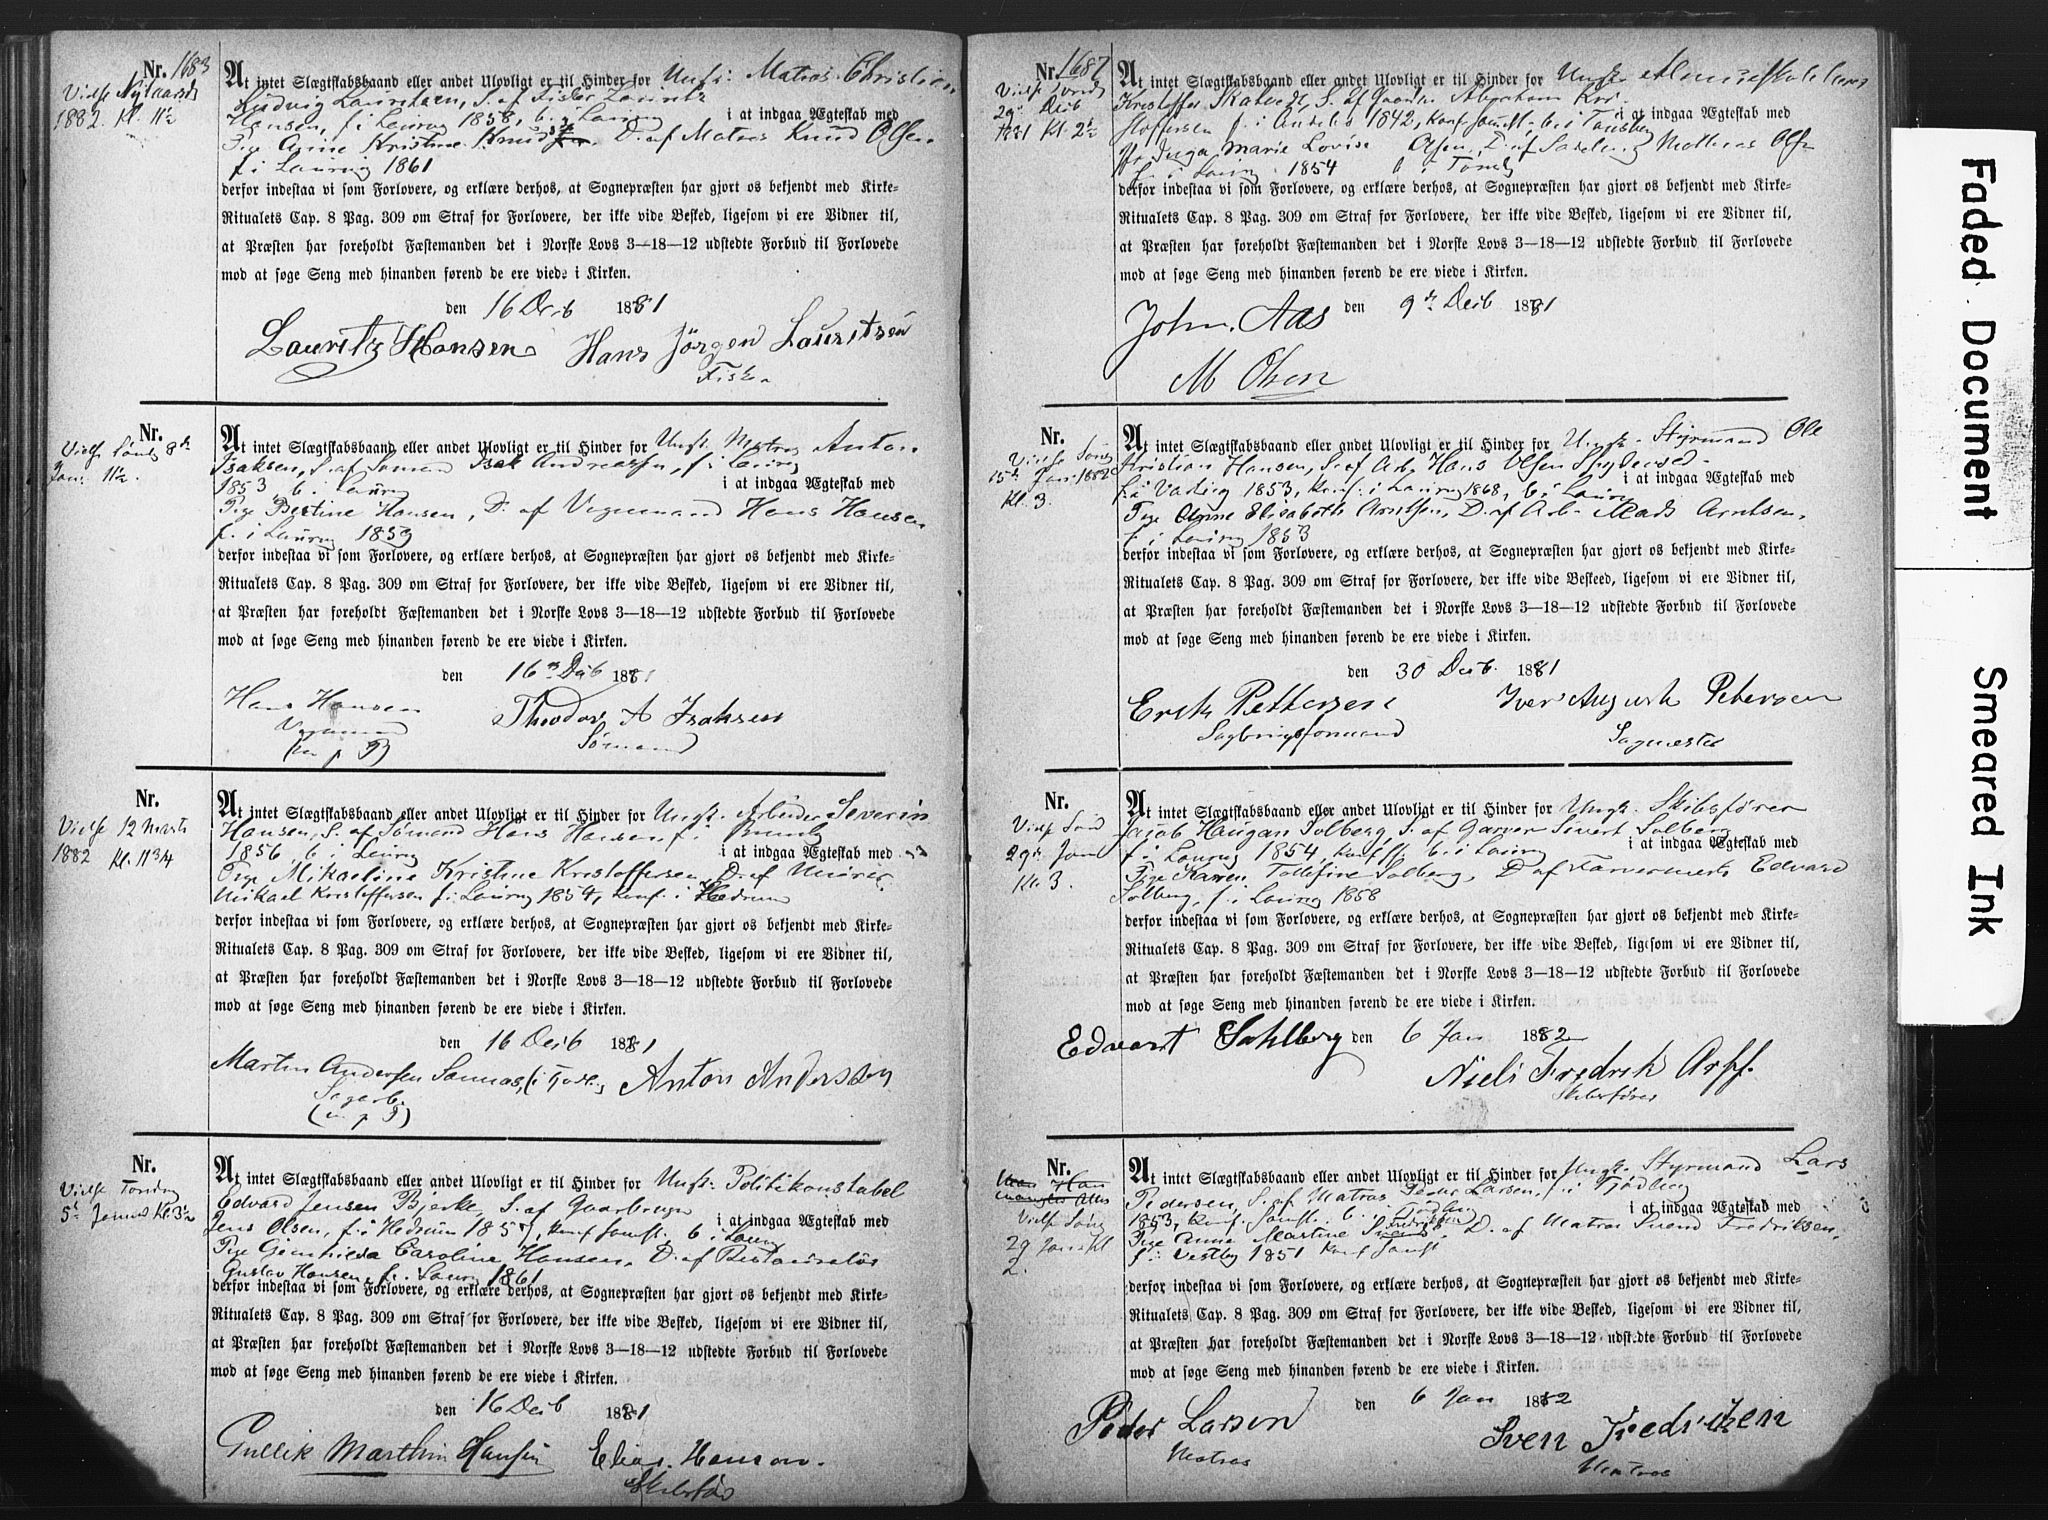 Nr. 1683
Vielse Nytaarsd
1882. Kl. 11½
At intet Slægtskabsbaand eller andet Ulovligt er til Hinder for Ungk. Matros Christian
Ludvig Lauritsen, S. af Fisker Lauritz
Hansen, f. i Laurvig 1858, b. i Laurvig i at indgaa Ægteskab med
Pige Anne Kristine Knuds D. af Matros Knud Olsen
f. i Laurvig 1861
derfor indestaa vi som Forlovere, og erklære derhos, at Sognepræsten har gjort os bekjendt med Kirke-
Ritualets Cap. 8 Pag. 309 om Straf for Forlovere, der ikke vide Besked, ligesom vi ere Vidner til,
at Præsten har foreholdt Fæstemanden det i Norske Lovs 3—18—12 udstedte Forbud til Forlovede
mod at søge Seng med hinanden førend de ere viede i Kirken.
den 16 Decb 1881
Lauritz Hansen Hans Jörgen Lauritsen
Fisker
Nr.
Vielse Sönd 8de
Jan. 11½.
At intet Slægtskabsbaand eller andet Ulovligt er til Hinder for Ungk. Matros Anton
Isaksen, S. af Sømand Isak Andreassen, f. i Laurvig
1853, b. i Laurvig i at indgaa Ægteskab med
Pige Bertine Hansen, D. af Vognmand Hans Hansen
f. i Laurvig 1859
derfor indestaa vi som Forlovere, og erklære derhos, at Sognepræsten har gjort os bekjendt med Kirke-
Ritualets Cap. 8 Pag. 309 om Straf for Forlovere, der ikke vide Besked, ligesom vi ere Vidner til,
at Præsten har foreholdt Fæstemanden det i Norske Lovs 3—18—12 udstedte Forbud til Forlovede
mod at søge Seng med hinanden førend de ere viede i Kirken.
den 16 Decb 1881
Hans Hansen Theodor A Isaksen
Vognmand Sømand
(m. p. P)
Nr.
Vielse 12 Marts
1882 Kl. 11 3/4
At intet Slægtskabsbaand eller andet Ulovligt er til Hinder for Ungk. Arbeider Severin
Hansen, S. af Sømand Hans Hansen, f. i
1856, b. i Laurvig i at indgaa Ægteskab med
Pige Mikaeline Kristine Kristoffersen, D. af Murer
Mikael Kristoffersen f. i Laurvig 1854, konf. i Hedrum
derfor indestaa vi som Forlovere, og erklære derhos, at Sognepræsten har gjort os bekjendt med Kirke-
Ritualets Cap. 8 Pag. 309 om Straf for Forlovere, der ikke vide Besked, ligesom vi ere Vidner til,
at Præsten har foreholdt Fæstemanden det i Norske Lovs 3—18—12 udstedte Forbud til Forlovede
mod at søge Seng med hinanden førend de ere viede i Kirken.
den 16 Decb 1881
Martin Andersen Anton Anderssen
Sagarb.
(m. p. P)
Nr.
Vielse Torsdag
5te Januar Kl. 3½
At intet Slægtskabsbaand eller andet Ulovligt er til Hinder for Ungk. Politikonstabel
Edvard Jensen Bjerke, S. af Gaardbruger
Jens Olsen, f. i Hedrum 1857, konf. samst. b. i Laurvig i at indgaa Ægteskab med
Pige Caroline Hansen, D. af Restauratør
Gustav Hansen, f. i Laurvig 1861
derfor indestaa vi som Forlovere, og erklære derhos, at Sognepræsten har gjort os bekjendt med Kirke-
Ritualets Cap. 8 Pag. 309 om Straf for Forlovere, der ikke vide Besked, ligesom vi ere Vidner til,
at Præsten har foreholdt Fæstemanden det i Norske Lovs 3—18—12 udstedte Forbud til Forlovede
mod at søge Seng med hinanden førend de ere viede i Kirken.
den 16 Decb 1881
Gullik Marthin Hansen Elias Hanson.
Nr. 1687
Vielse Torsd
29de Decb
1881 Kl. 2½
At intet Slægtskabsbaand eller andet Ulovligt er til Hinder for Ungk.
Kristoffer Skatvedt, S. af Gaardm Abraham Kri-
stoffersen f. i 1842, konf. samst. b. i Tønsberg i at indgaa Ægteskab med
Inga Marie Lovise Olsen, D. af Mathias Olsen
f. i Laurvig 1854
derfor indestaa vi som Forlovere, og erklære derhos, at Sognepræsten har gjort os bekjendt med Kirke-
Ritualets Cap. 8 Pag. 309 om Straf for Forlovere, der ikke vide Besked, ligesom vi ere Vidner til,
at Præsten har foreholdt Fæstemanden det i Norske Lovs 3—18—12 udstedte Forbud til Forlovede
mod at søge Seng med hinanden førend de ere viede i Kirken.
den 9de Decb 1881
John. Aas
M Olsen
Nr.
Vielse Sönd
15de Jan. 1882
Kl. 3.
At intet Slægtskabsbaand eller andet Ulovligt er til Hinder for Ungk. Styrmand Ole
Kristian Hansen, S. af Arb. Hans Olsen
f. i 1853, konf. i Laurvig 1868, b. i Laurvig i at indgaa Ægteskab med
Pige Anne Elisabeth Arntsen, D. af Arb. Mads Arntsen,
f. i Laurvig 1853
derfor indestaa vi som Forlovere, og erklære derhos, at Sognepræsten har gjort os bekjendt med Kirke-
Ritualets Cap. 8 Pag. 309 om Straf for Forlovere, der ikke vide Beskeed, ligesom vi ere Vidner til,
at Præsten har foreholdt Fæstemanden det i Norske Lovs 3—18—12 udstedte Forbud til Forlovede
mod at søge Seng med hinanden førend de ere viede i Kirken.
den 30 Decb. 1881
Erik Pettersen Iver August Petersen
Sagbrugsformand Sagmester
Nr.
Vielse Sönd
29de Jan
Kl. 3.
At intet Slægtskabsbaand eller andet Ulovligt er til Hinder for Ungk. Skibsfører
Jacob Haugan Solberg, S. af Garver Sivert Solberg
f. i Laurvig 1854, b. i Laurvig i at indgaa Ægteskab med
Pige Karen Tollefine Solberg, D. af Edvard
Solberg, f. i Laurvig 1858
derfor indestaa vi som Forlovere, og erklære derhos, at Sognepræsten har gjort os bekjendt med Kirke-
Ritualets Cap. 8 Pag. 309 om Straf for Forlovere, der ikke vide Besked, ligesom vi ere Vidner til,
at Præsten har foreholdt Fæstemanden det i Norske Lovs 3—18—12 udstedte Forbud til Forlovede
mod at søge Seng med hinanden førend de ere viede i Kirken.
Edvart Sahlberg den 6 Jan 1882
Niels Fredrik Arff.
Skibsfører
Nr.
Vielse Sönd
29 Jan. Kl
2.
At intet Slægtskabsbaand eller andet Ulovligt er til Hinder for Ungk. Styrmand Lars
Pedersen, S. af Matros Peder Larsen, f. i Tjödling
1853, konf. samst. b. i Tjödling i at indgaa Ægteskab med
Pige Anne Martine Fredriksen D. af Matros Svend Fredriksen,
f. i Vestby 1851 konf. samst
derfor indestaa vi som Forlovere, og erklære derhos, at Sognepræsten har gjort os bekjendt med Kirke-
Ritualets Cap. 8 Pag. 309 om Straf for Forlovere, der ikke vide Besked, ligesom vi ere Vidner til,
at Præsten har foreholdt Fæstemanden det i Norske Lovs 3—18—12 udstedte Forbud til Forlovede
mod at søge Seng med hinanden førend de ere viede i Kirken.
den 6 Jan 1882
Peder Larsen Sven Fredriksen
Matros Matros
Faded Document
Smeared Ink